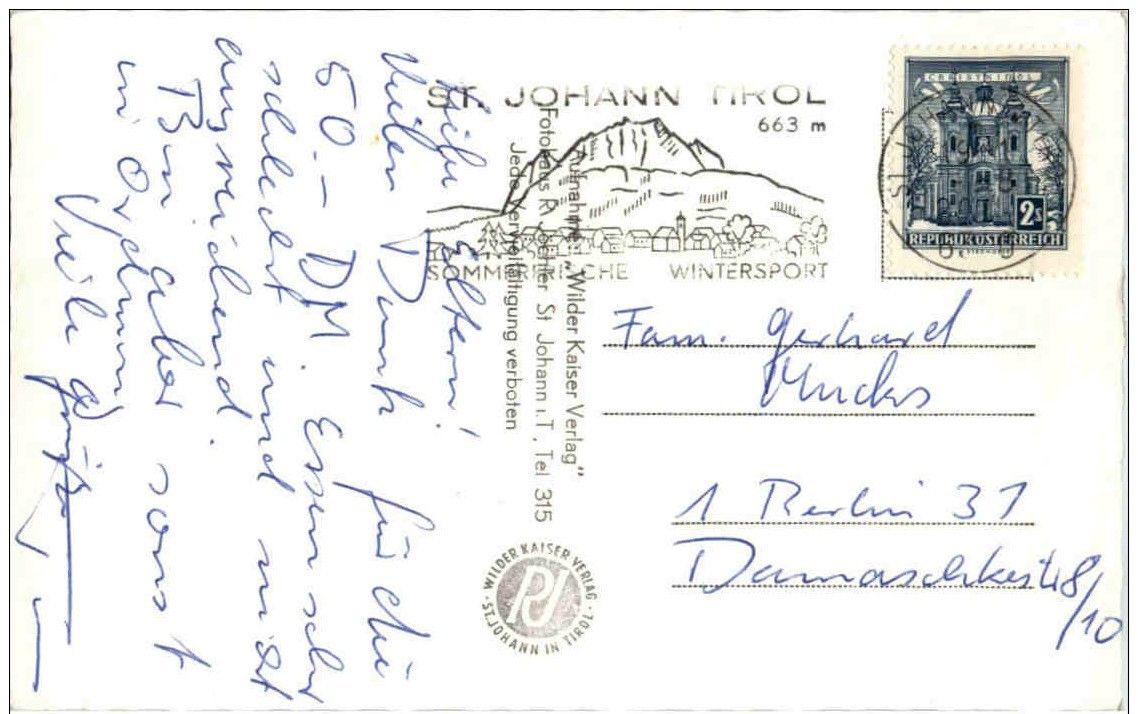 Liebe Eltern!
Vielen Dank für die
50,- DM. Essen sehr
schlecht und nicht
ausreichend.
Bin aber sonst
in Ordnung
Viele Grüße
ST. JOHANN TIROL
663 m
SOMMERFRISCHE WINTERSPORT
Aufnahme: „Wilder Kaiser Verlag"
Fotohaus R. Jöchler St Johann i. T, Tel 315
Jede Vervielfältigung verboten
WILDER KAISER VERLAG · ST. JOHANN IN TIROL ·
CHRISTKINDL
2s
REPUBLIK ÖSTERREICH
Fam. Gerhard
1 Berlin 31
Damaschkestr 8/10